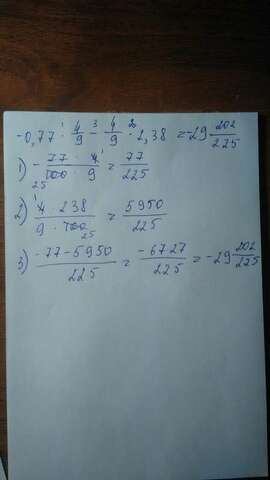 -0,77 ¹· 4/9 ³- 4/9 ²· 2,38 = -29 202/225
1) - 77 · 4¹ / 25 100 · 9 = 77/225
2) ¹4 238 / 9 · 100 25 = 5950/225
3) -77-5950 / 225 = -6727/225 = -29 202/225